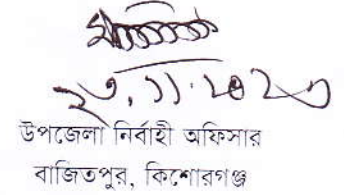 ২৩.১১.২০২৩
উপজেলা নির্বাহী অফিসার
বাজিতপুর, কিশোরগঞ্জ